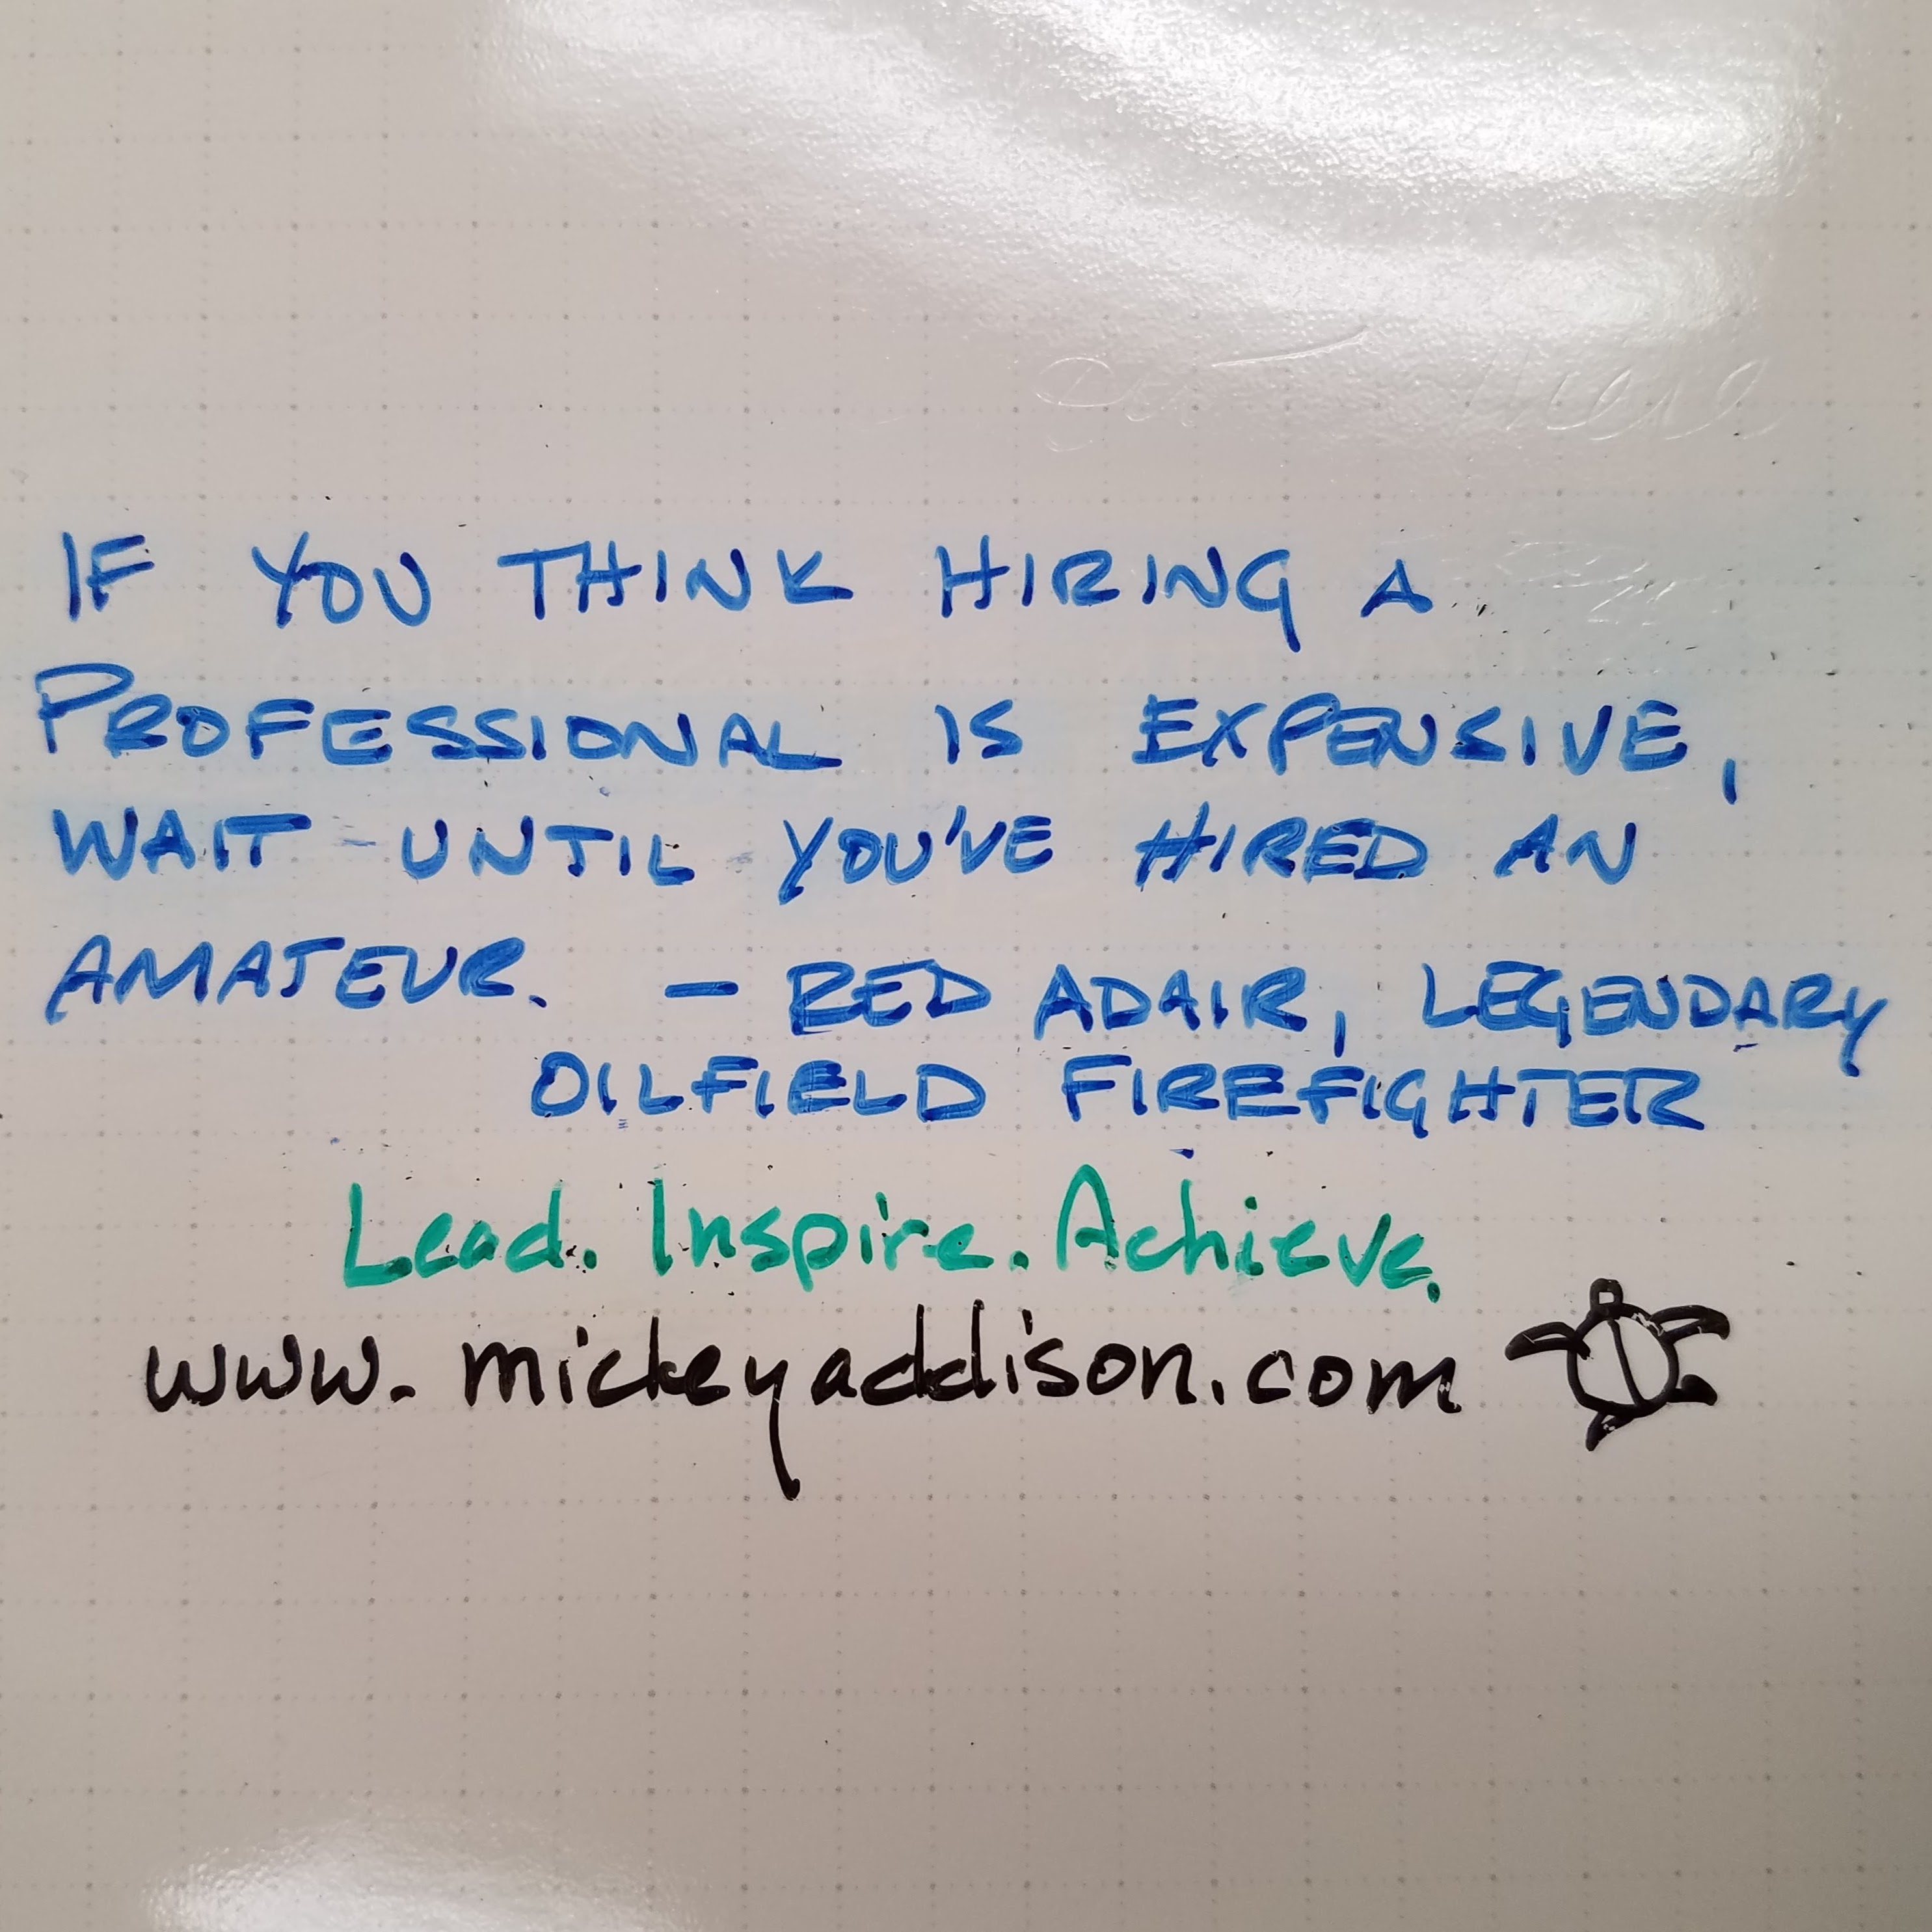 IF YOU THINK HIRING A
PROFESSIONAL IS EXPENSIVE,
WAIT UNTIL YOU'VE HIRED AN
AMATEUR. - RED ADAIR, LEGENDARY
OILFIELD FIREFIGHTER
Lead. Inspire. Achieve.
www.mickeyaddison.com